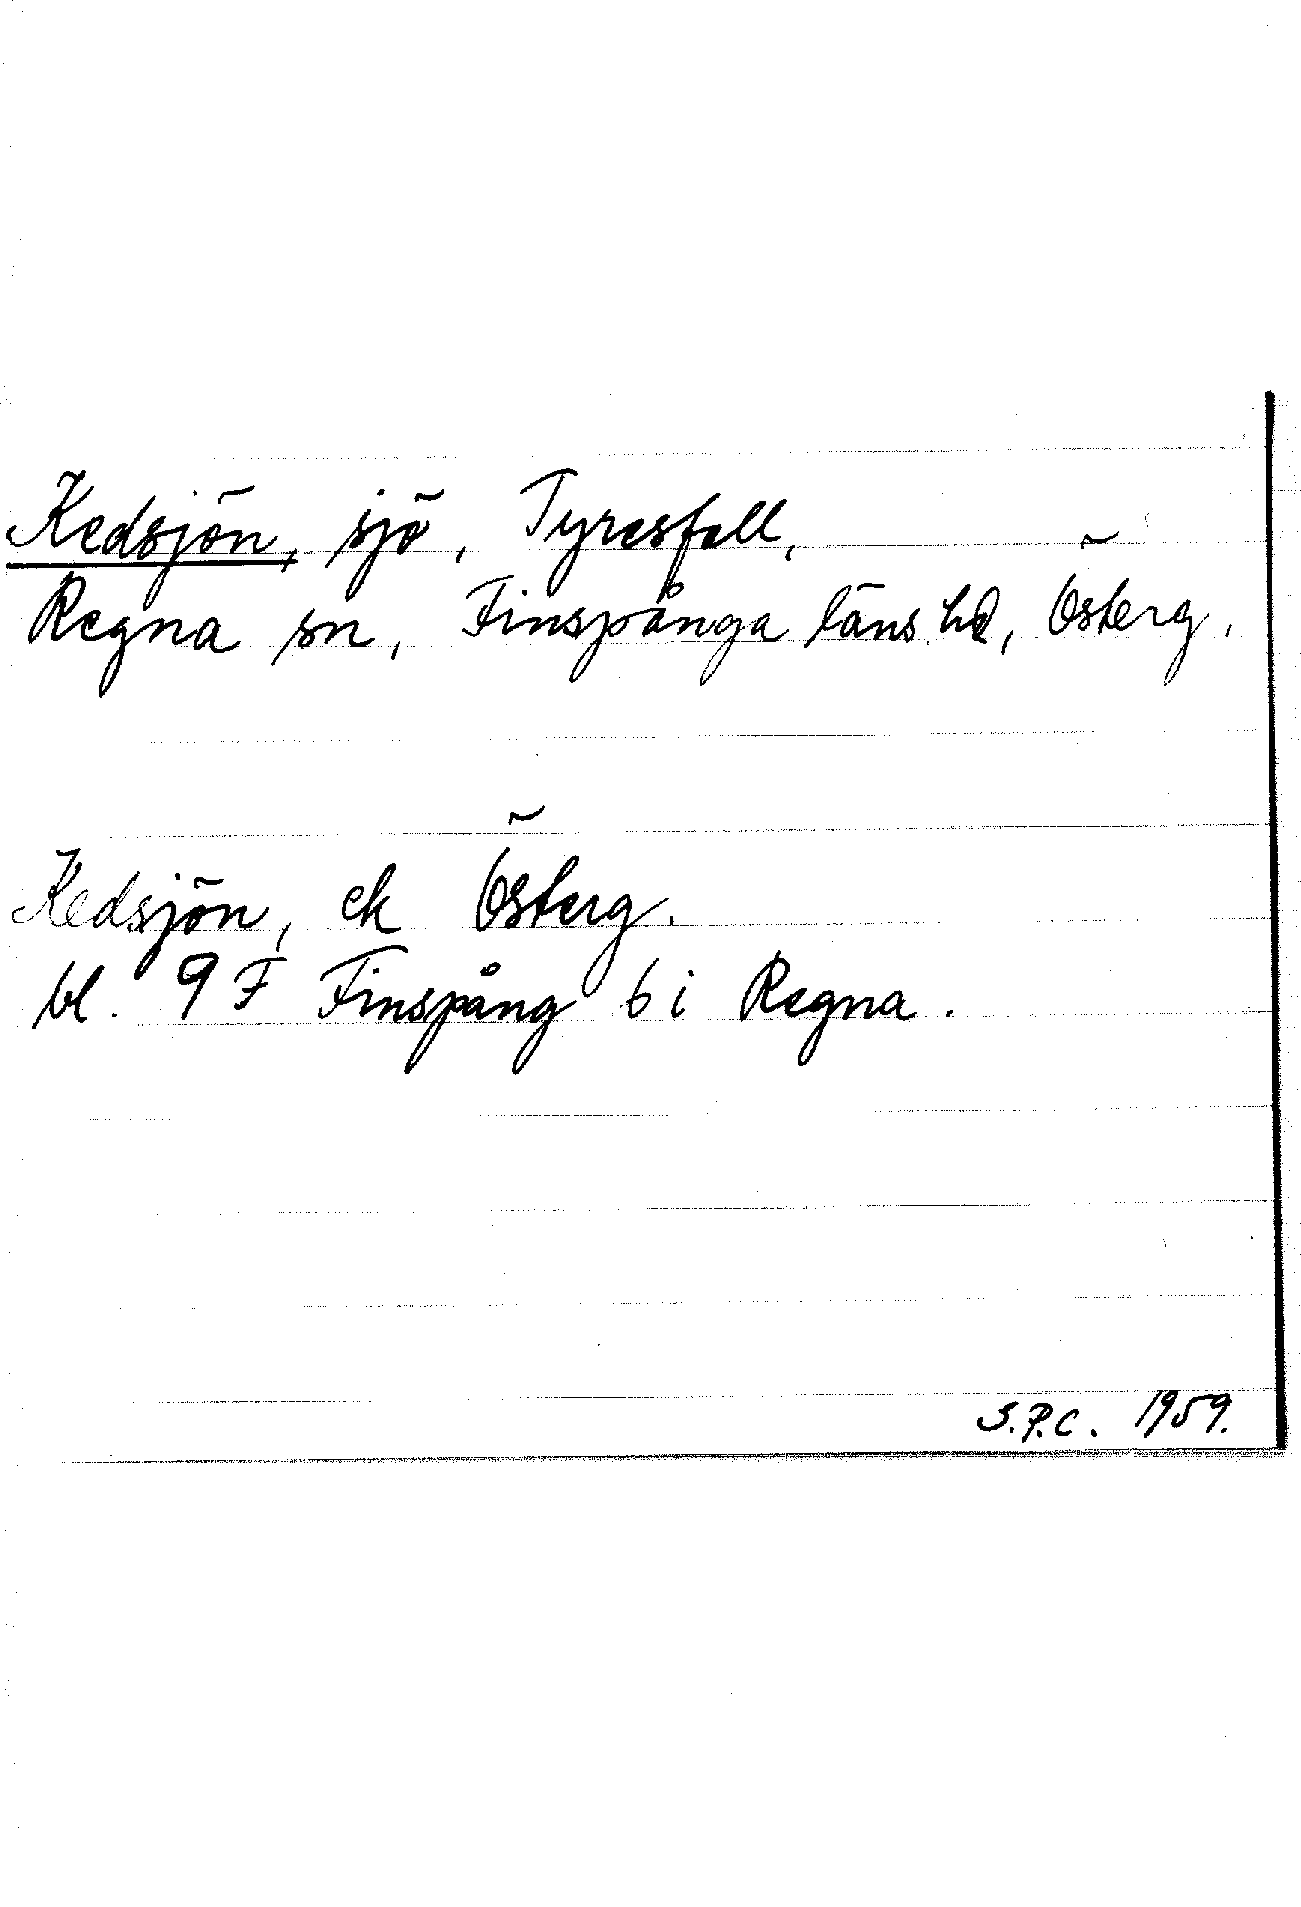 Kedsjön, sjö, Tyresfall,
Regna sn, Finspånga läns hd, Österg,
Kedsjön, ek Österg.
bl. 9 F Finspång 6 i Regna.
S.P.C. 1959.